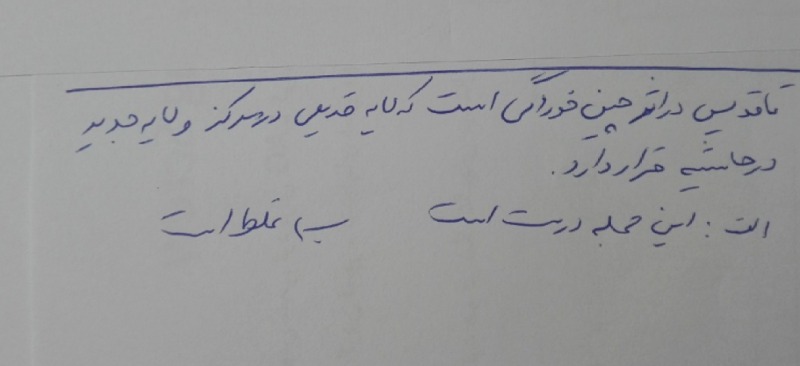 تاقدیس در اثر چین خوردگی است که لایه قدیمی در مرکز و لایه جدید
در حاشیه قرار دارد.
الف: این جمله درست است ب) غلط است